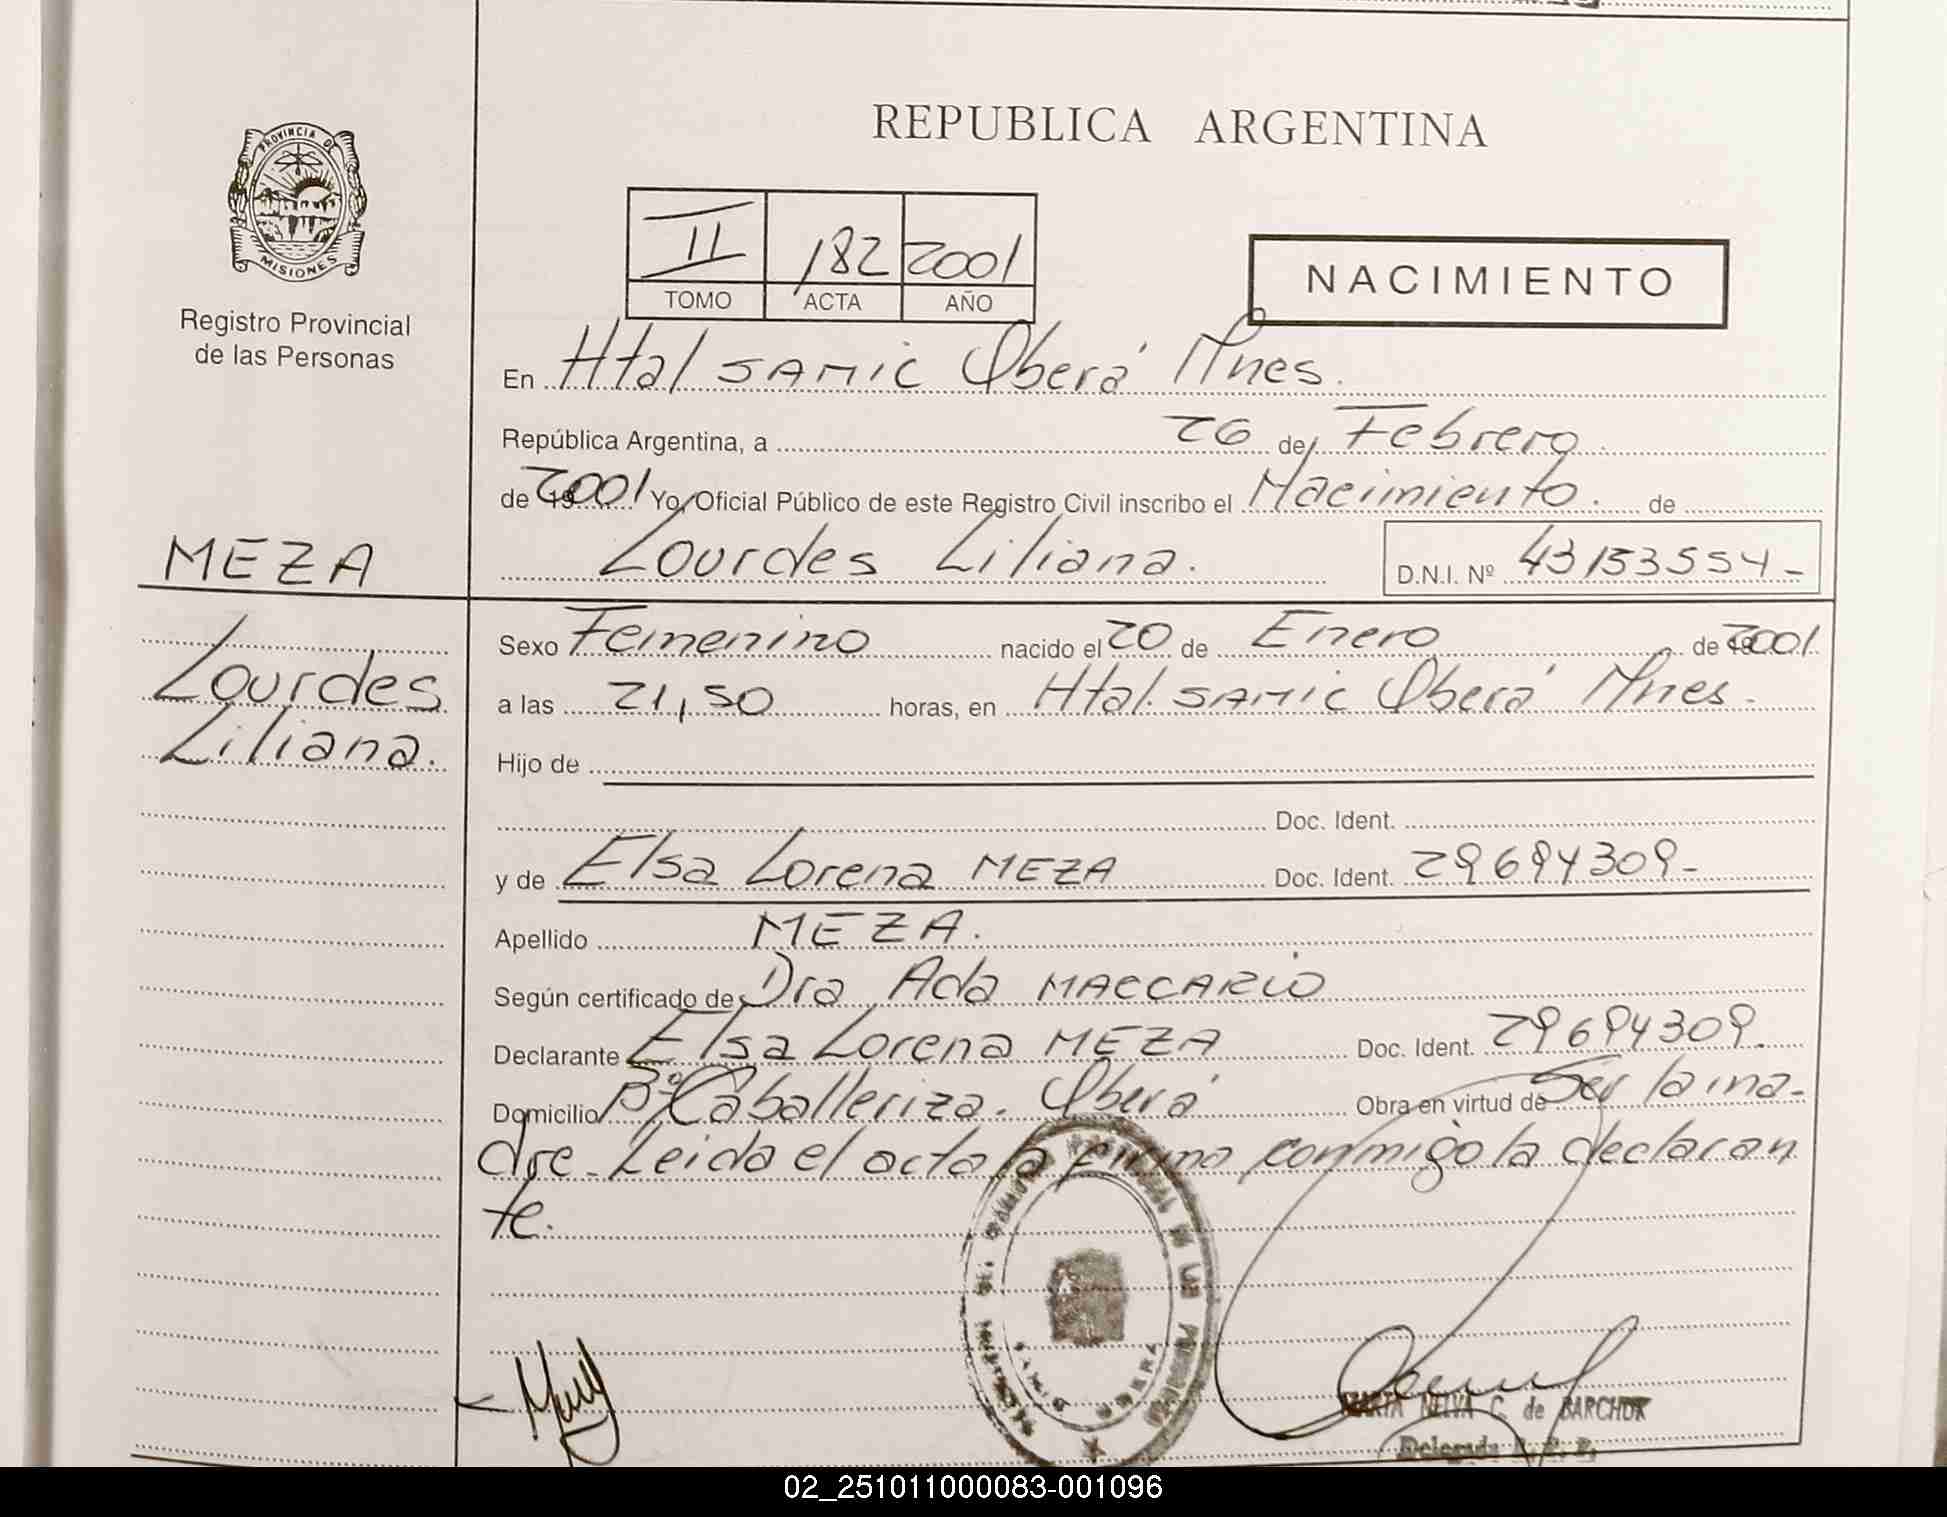 REPUBLICA ARGENTINA
PROVINCIA DE
MISIONES
Registro Provincial
de las Personas
II 182 2001
TOMO ACTA AÑO
NACIMIENTO
En Htal SAMIC Oberá Mnes.
República Argentina, a 26 de Febrero
de 2001 Yo, Oficial Público de este Registro Civil inscribo el Nacimiento. de
MEZA
Lourdes Liliana. D.N.I. Nº 43153554-
Lourdes
Liliana.
Sexo Femenino nacido el 20 de Enero de 2001.
a las 21,50 horas, en Htal. SAMIC Oberá Mnes.
Hijo de
Doc. Ident.
y de Elsa Lorena MEZA Doc. Ident. 29694309-
Apellido MEZA.
Según certificado de Dra Ada MACCARIO
Declarante Elsa Lorena MEZA Doc. Ident. 29694309.
Domicilio Bº Caballeriza. Oberá Obra en virtud de Ser la ma-
dre. Leida el acta la firma conmigo la declaran
te.
MARTA NELVA C. de BARCHUK
Delegada R. P. P.
02_251011000083-001096